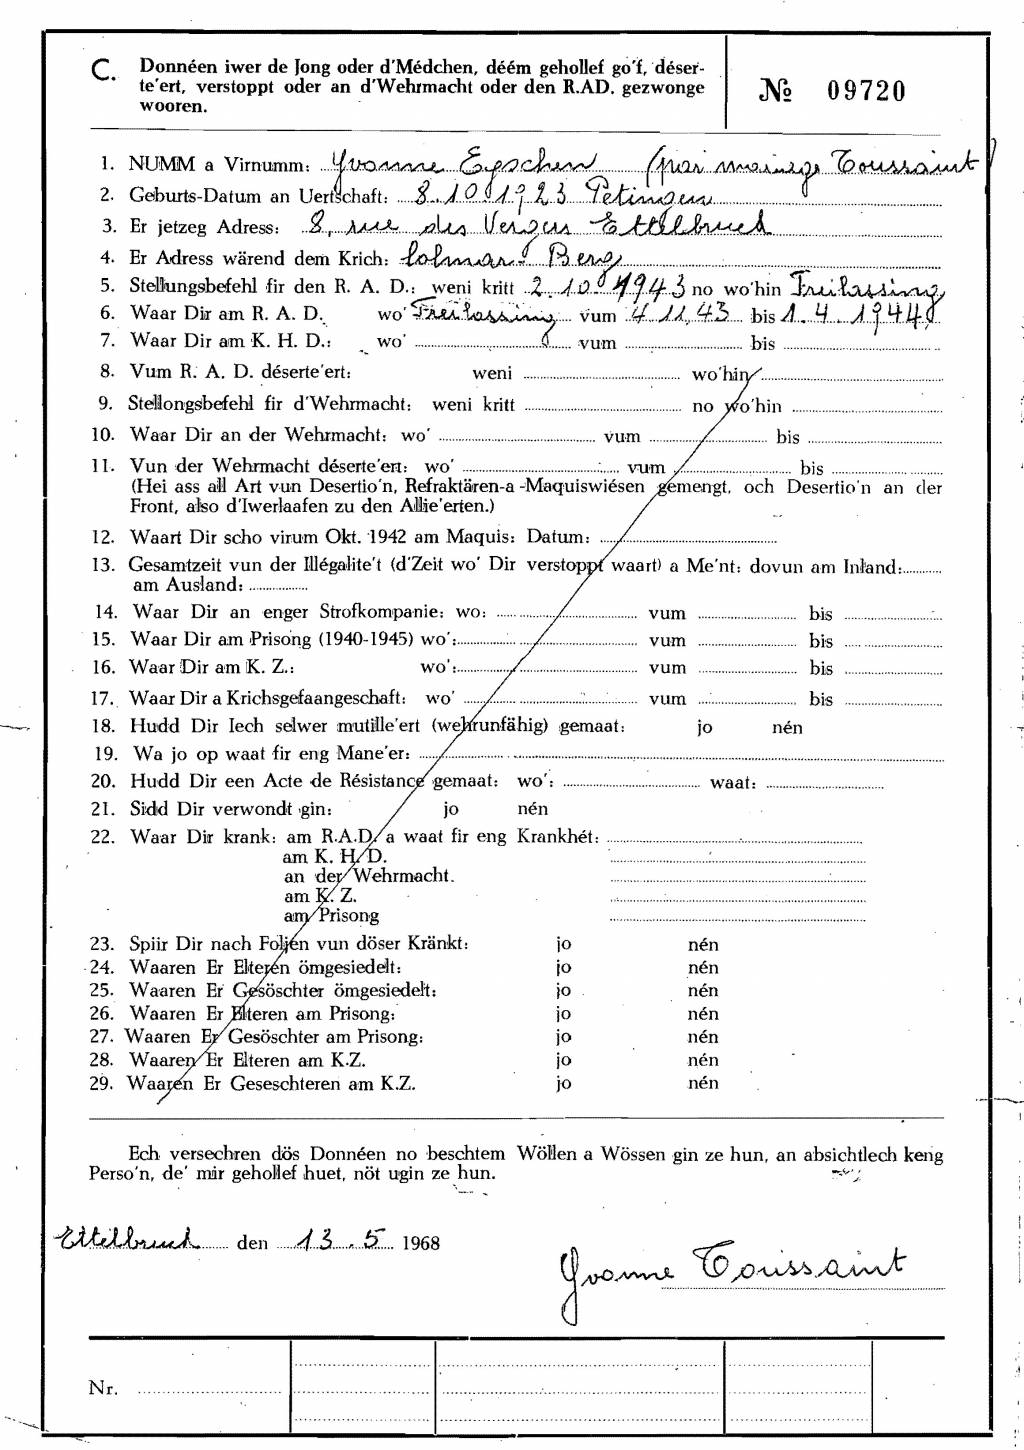 C. Donnéen iwer de Jong oder d'Médchen, déém gehollef go'f, déser-
te'ert, verstoppt oder an d'Wehrmacht oder den R.AD. gezwonge
wooren.
№ 09720
1. NUMM a Virnumm: Yvonne Eyschen (par mariage Toussaint)
2. Geburts-Datum an Uertschaft: 8.10.1923 Petingen
3. Er jetzeg Adress: 8, rue des Vergers Ettelbruck
4. Er Adress wärend dem Krich: Colmar-Berg
5. Stellungsbefehl fir den R. A. D.: weni kritt 2.10.1943 no wo'hin Freilassing
6. Waar Dir am R. A. D. wo' Freilassing vum 4.11.43 bis 1.4.1944
7. Waar Dir am K. H. D.: wo' vum bis
8. Vum R. A. D. déserte'ert: weni wo'hin
9. Stellongsbefehl fir d'Wehrmacht: weni kritt no wo'hin
10. Waar Dir an der Wehrmacht: wo' vum bis
11. Vun der Wehrmacht déserte'ert: wo' vum bis
(Hei ass all Art vun Desertio'n, Refraktären-a -Maquiswiésen gemengt, och Desertio'n an der
Front, also d'Iwerlaafen zu den Allie'erten.)
12. Waart Dir scho virum Okt. 1942 am Maquis: Datum:
13. Gesamtzeit vun der Illégalite't (d'Zeit wo' Dir verstoppt waart) a Me'nt: dovun am Inland:
am Ausland:
14. Waar Dir an enger Strofkompanie: wo: vum bis
15. Waar Dir am Prisong (1940-1945) wo': vum bis
16. Waar Dir am K. Z.: wo': vum bis
17. Waar Dir a Krichsgefaangeschaft: wo' vum bis
18. Hudd Dir Iech selwer mutille'ert (wehrunfähig) gemaat: jo nén
19. Wa jo op waat fir eng Mane'er:
20. Hudd Dir een Acte de Résistance gemaat: wo': waat:
21. Sidd Dir verwondt gin: jo nén
22. Waar Dir krank: am R.A.D. a waat fir eng Krankhét:
am K. H. D.
an der Wehrmacht.
am K. Z.
am Prisong
23. Spiir Dir nach Foljen vun döser Kränkt: jo nén
24. Waaren Er Elteren ömgesiedelt: jo nén
25. Waaren Er Gesöschter ömgesiedelt: jo nén
26. Waaren Er Elteren am Prisong: jo nén
27. Waaren Er Gesöschter am Prisong: jo nén
28. Waaren Er Elteren am K.Z. jo nén
29. Waaren Er Geseschteren am K.Z. jo nén
Ech versechren dös Donnéen no beschtem Wöllen a Wössen gin ze hun, an absichtlech keng
Perso'n, de' mir gehollef huet, nöt ugin ze hun.
Ettelbruck den 13.5 1968
Yvonne Toussaint
Nr.